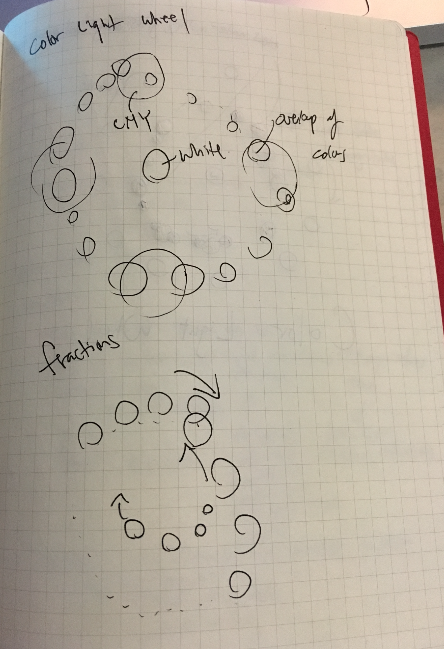 color light wheel
CMY
white
overlap of
colors
fractions